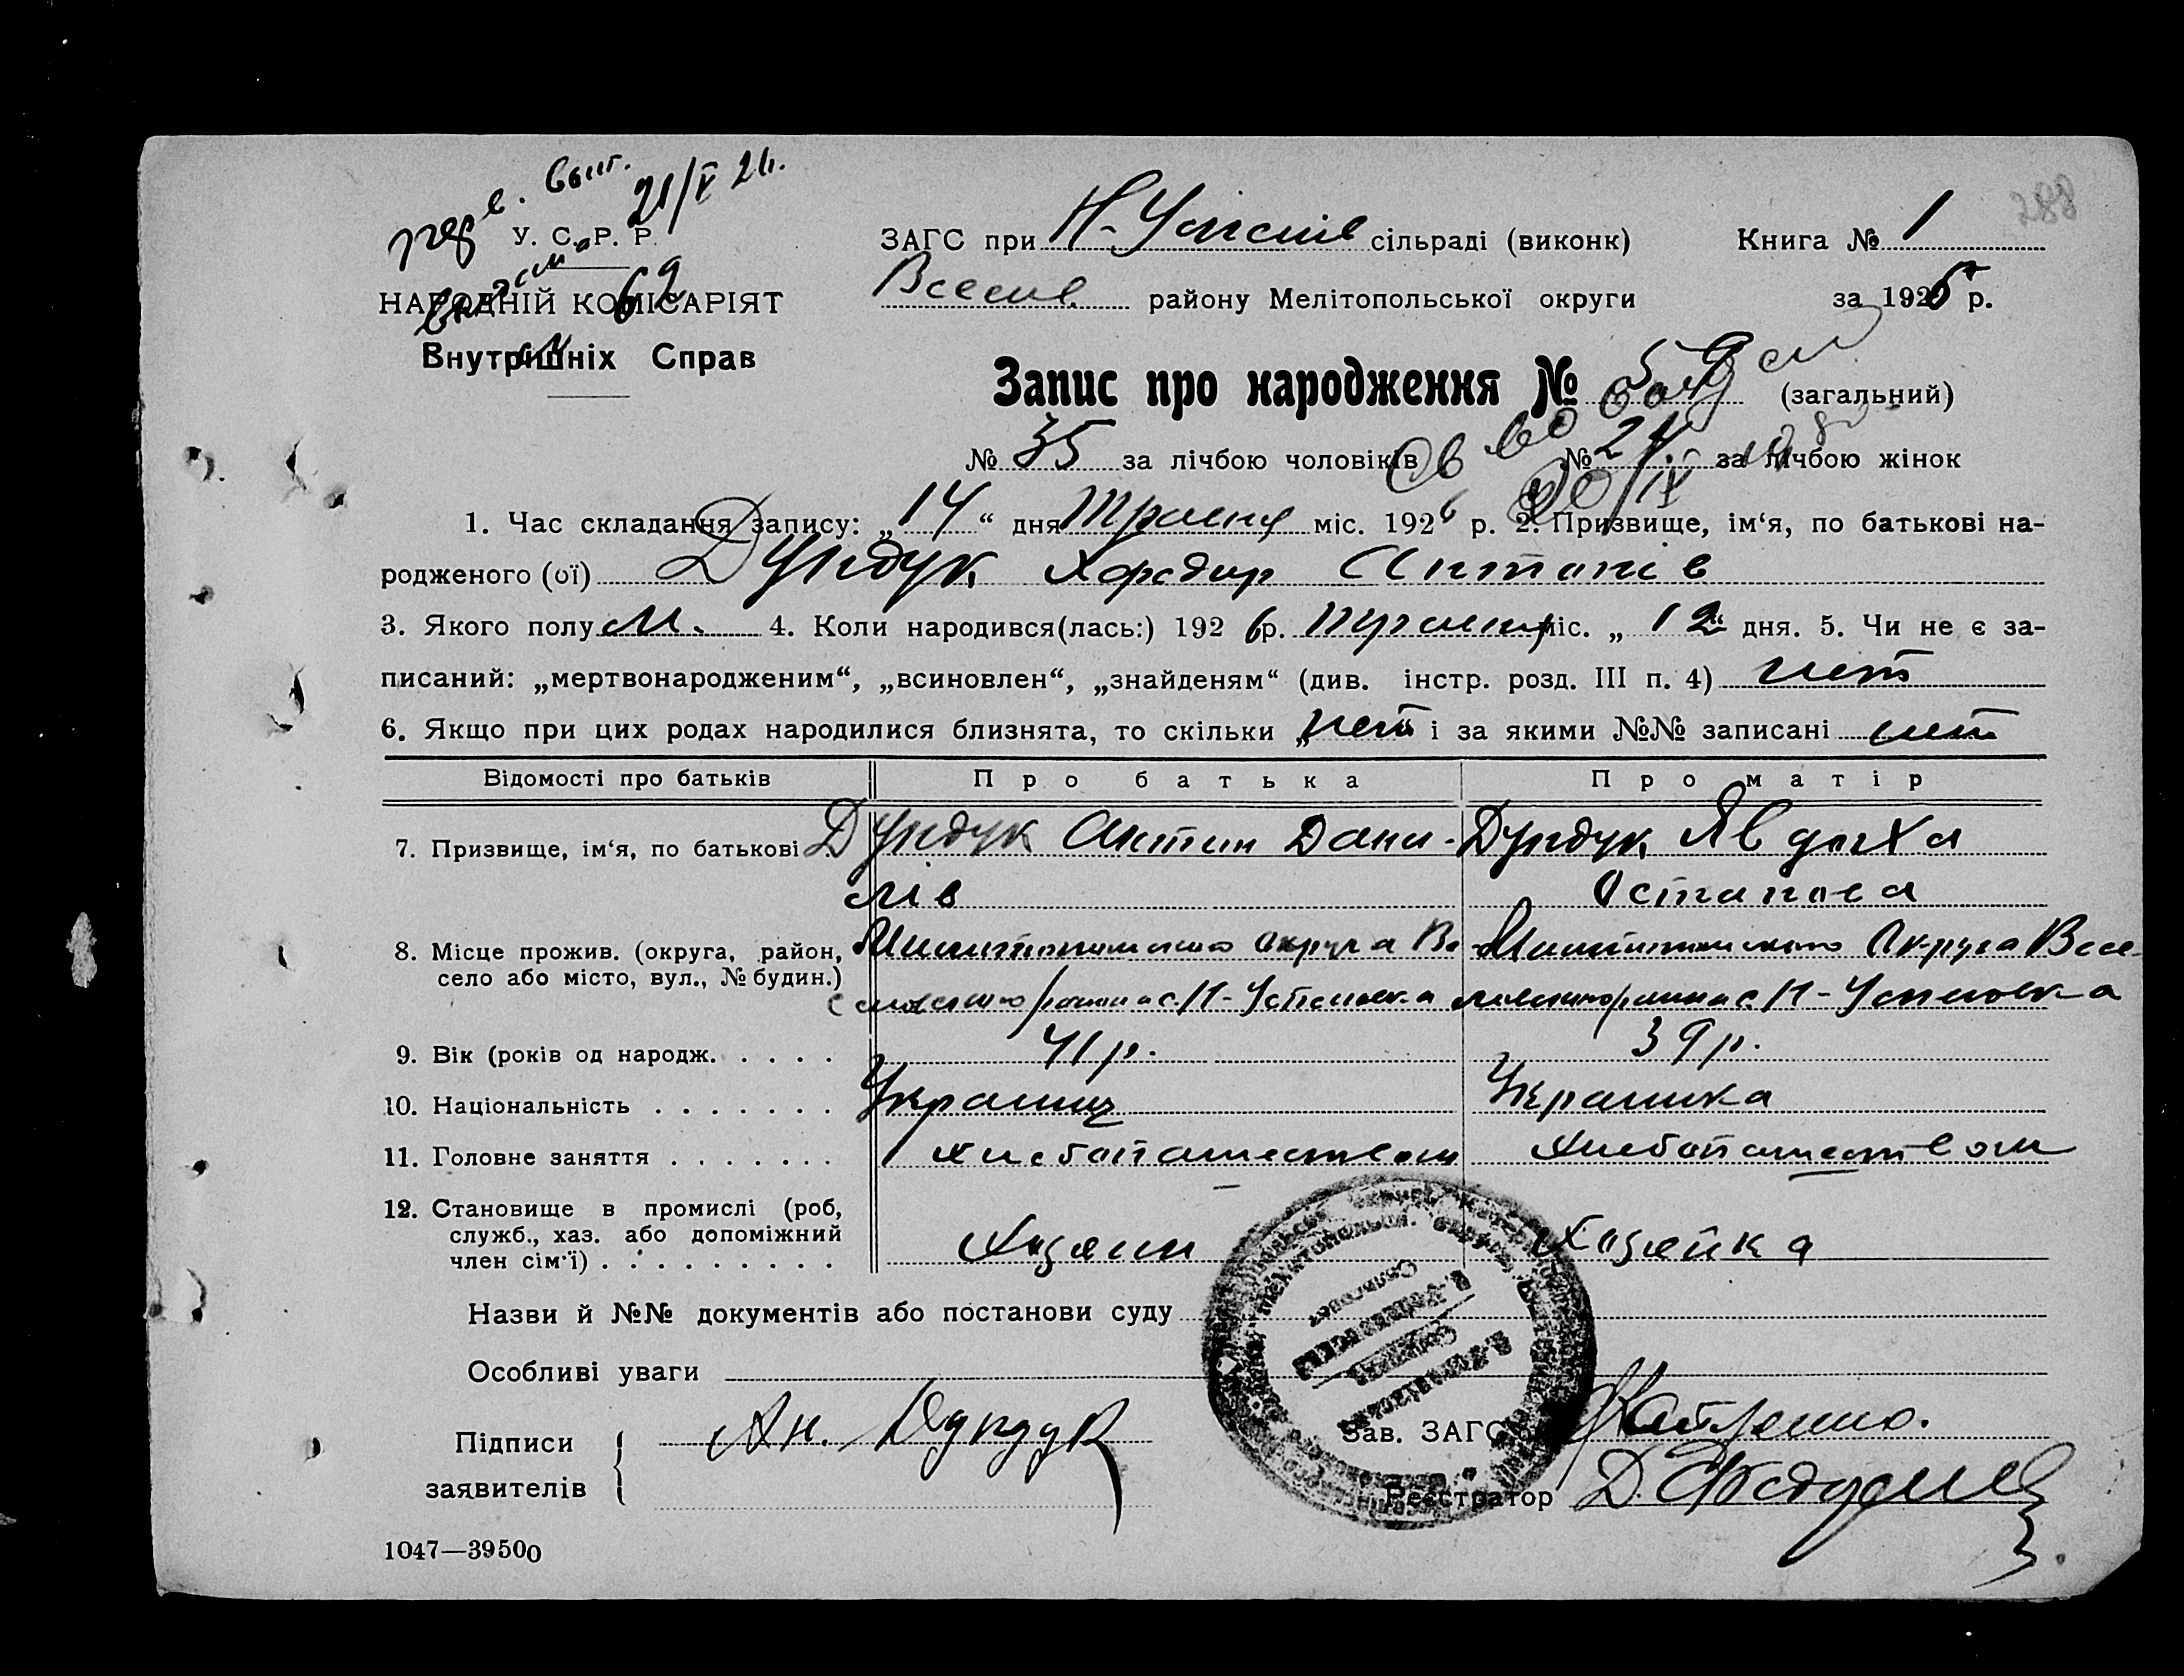 288
21/V 26.
У. С. Р. Р.
ЗАГС при Н-Успенів сільраді (виконк) Книга № 1
62
НАРОДНІЙ КОМІСАРІЯТ
Весел. району Мелітопольської округи за 1926 р.
Внутрішніх Справ
Запис про народження № 59 (загальний)
№ 35 за лічбою чоловіків № 24 за лічбою жінок
1. Час складання запису: „14“ дня Травня міс. 1926 р. 2. Призвище, ім‘я, по батькові на-
родженого (ої) Дундук Антонів
3. Якого полу м. 4. Коли народився(лась:) 1926 р. травня міс. „12“ дня. 5. Чи не є за-
писаний: „мертвонародженим“, „всиновлен“, „знайденям“ (див. інстр. розд. III п. 4) нет
6. Якщо при цих родах народилися близнята, то скільки „нет“ і за якими №№ записані нет
Відомості про батьків Про батька Про матір
7. Призвище, ім‘я, по батькові Дундук Антин Дани- Дундук Явдоха
лів Остапова
8. Місце прожив. (округа, район, село або місто, вул., № будин.) округа Округа Весе-
Н-Успеновка Н-Успеновка
9. Вік (років од народж. . . . . 41 р. 39 р.
10. Національність . . . . . . . Украинц Украинка
11. Головне заняття . . . . . . . Хлебопашеством Хлебопашеством
12. Становище в промислі (роб,
служб., хаз. або допоміжний
член сім‘ї) . . . . . . . . . Хазяин Хазяйка
Назви й №№ документів або постанови суду
Особливі уваги
Підписи Ан. Дундук
заявителів
Зав. ЗАГС
Реєстратор
1047—39500